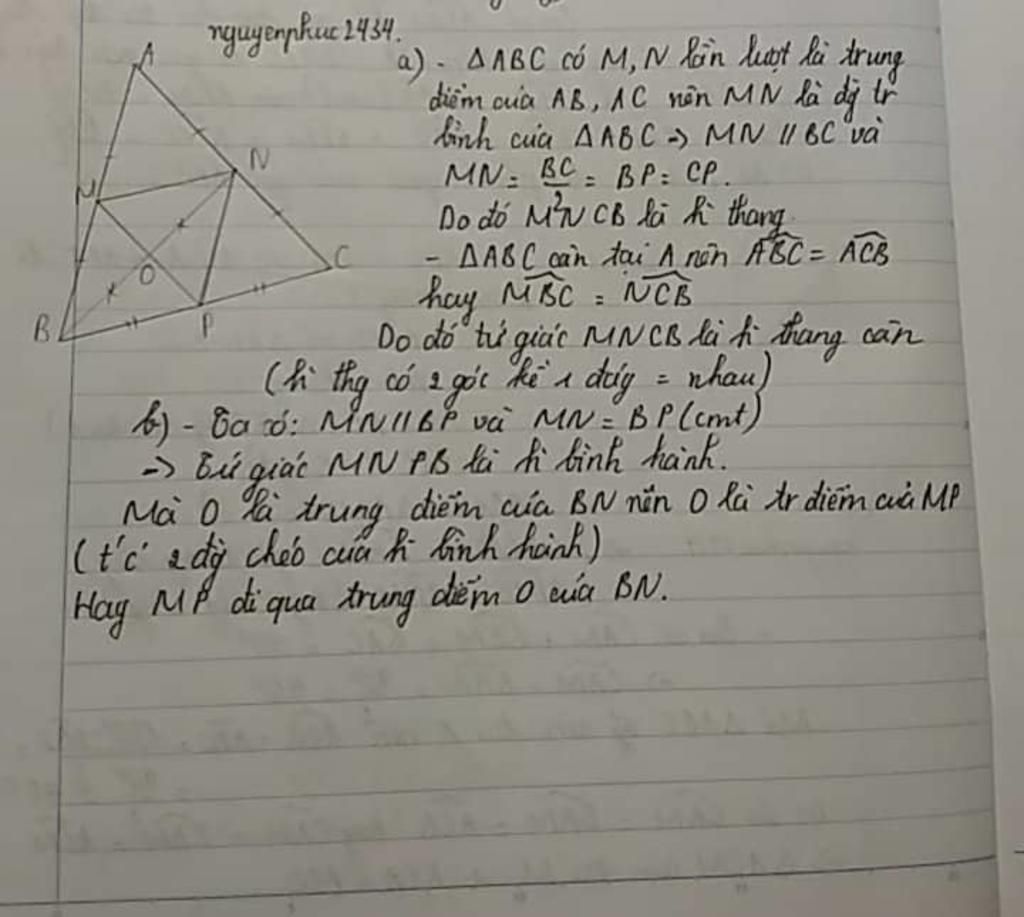 nguyenphuc2434.
a) - ΔABC có M, N lần lượt là trung
điểm của AB, AC nên MN là đg tr
bình của ΔABC -> MN // BC và
MN = BC/2 = BP = CP.
Do đó MNCB là h thang
- ΔABC cân tại A nên \widehat{ABC} = \widehat{ACB}
hay \widehat{MBC} = \widehat{NCB}
Do đó tứ giác MNCB là h thang cân
(h thg có 2 góc kề 1 đáy = nhau)
b) - Ta có: MN // BP và MN = BP (cmt)
-> Tứ giác MNPB là h bình hành.
Mà O là trung điểm của BN nên O là tr điểm của MP
(t/c' 2 đg chéo của h bình hành)
Hay MP đi qua trung điểm O của BN.
A
M
N
O
C
B
P